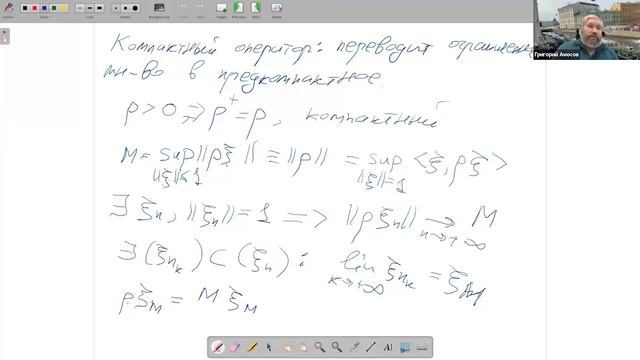 Компактный оператор: переводит ограниченн
мн-во в предкомпактное.
ρ > 0 ⇒ ρ⁺ = ρ, компактный
M = sup ||ρξ|| ≡ ||ρ|| = sup <ξ, ρξ>
||ξ||≤1 ||ξ||=1
∃ ξₙ, ||ξₙ|| = 1 ⇒ ||ρξₙ|| → M
n→+∞
∃ (ξₙₖ) ⊂ (ξₙ): lim ξₙₖ = ξM
k→+∞
ρξM = M ξM
Григорий Амосов